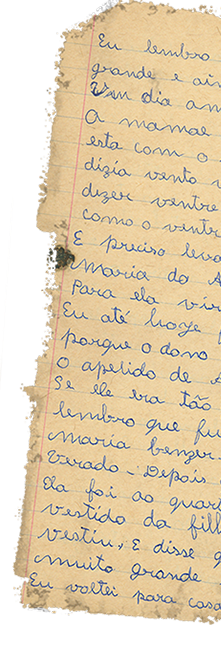 Eu lembro
grande e ai
Um dia am
A mamãe
esta com o
dizia vento v
dizer ventre
como o ventr
E preciso leva
Maria do A
Para ela vir
Eu até hoje
porque o dono
O apelido de A
Se ele era tão
lembro que fu
maria benzer
Verado - Depois
Ela foi ao quart
vestido da fill
vestiu, E disse q
muito grande
Eu voltei para casa